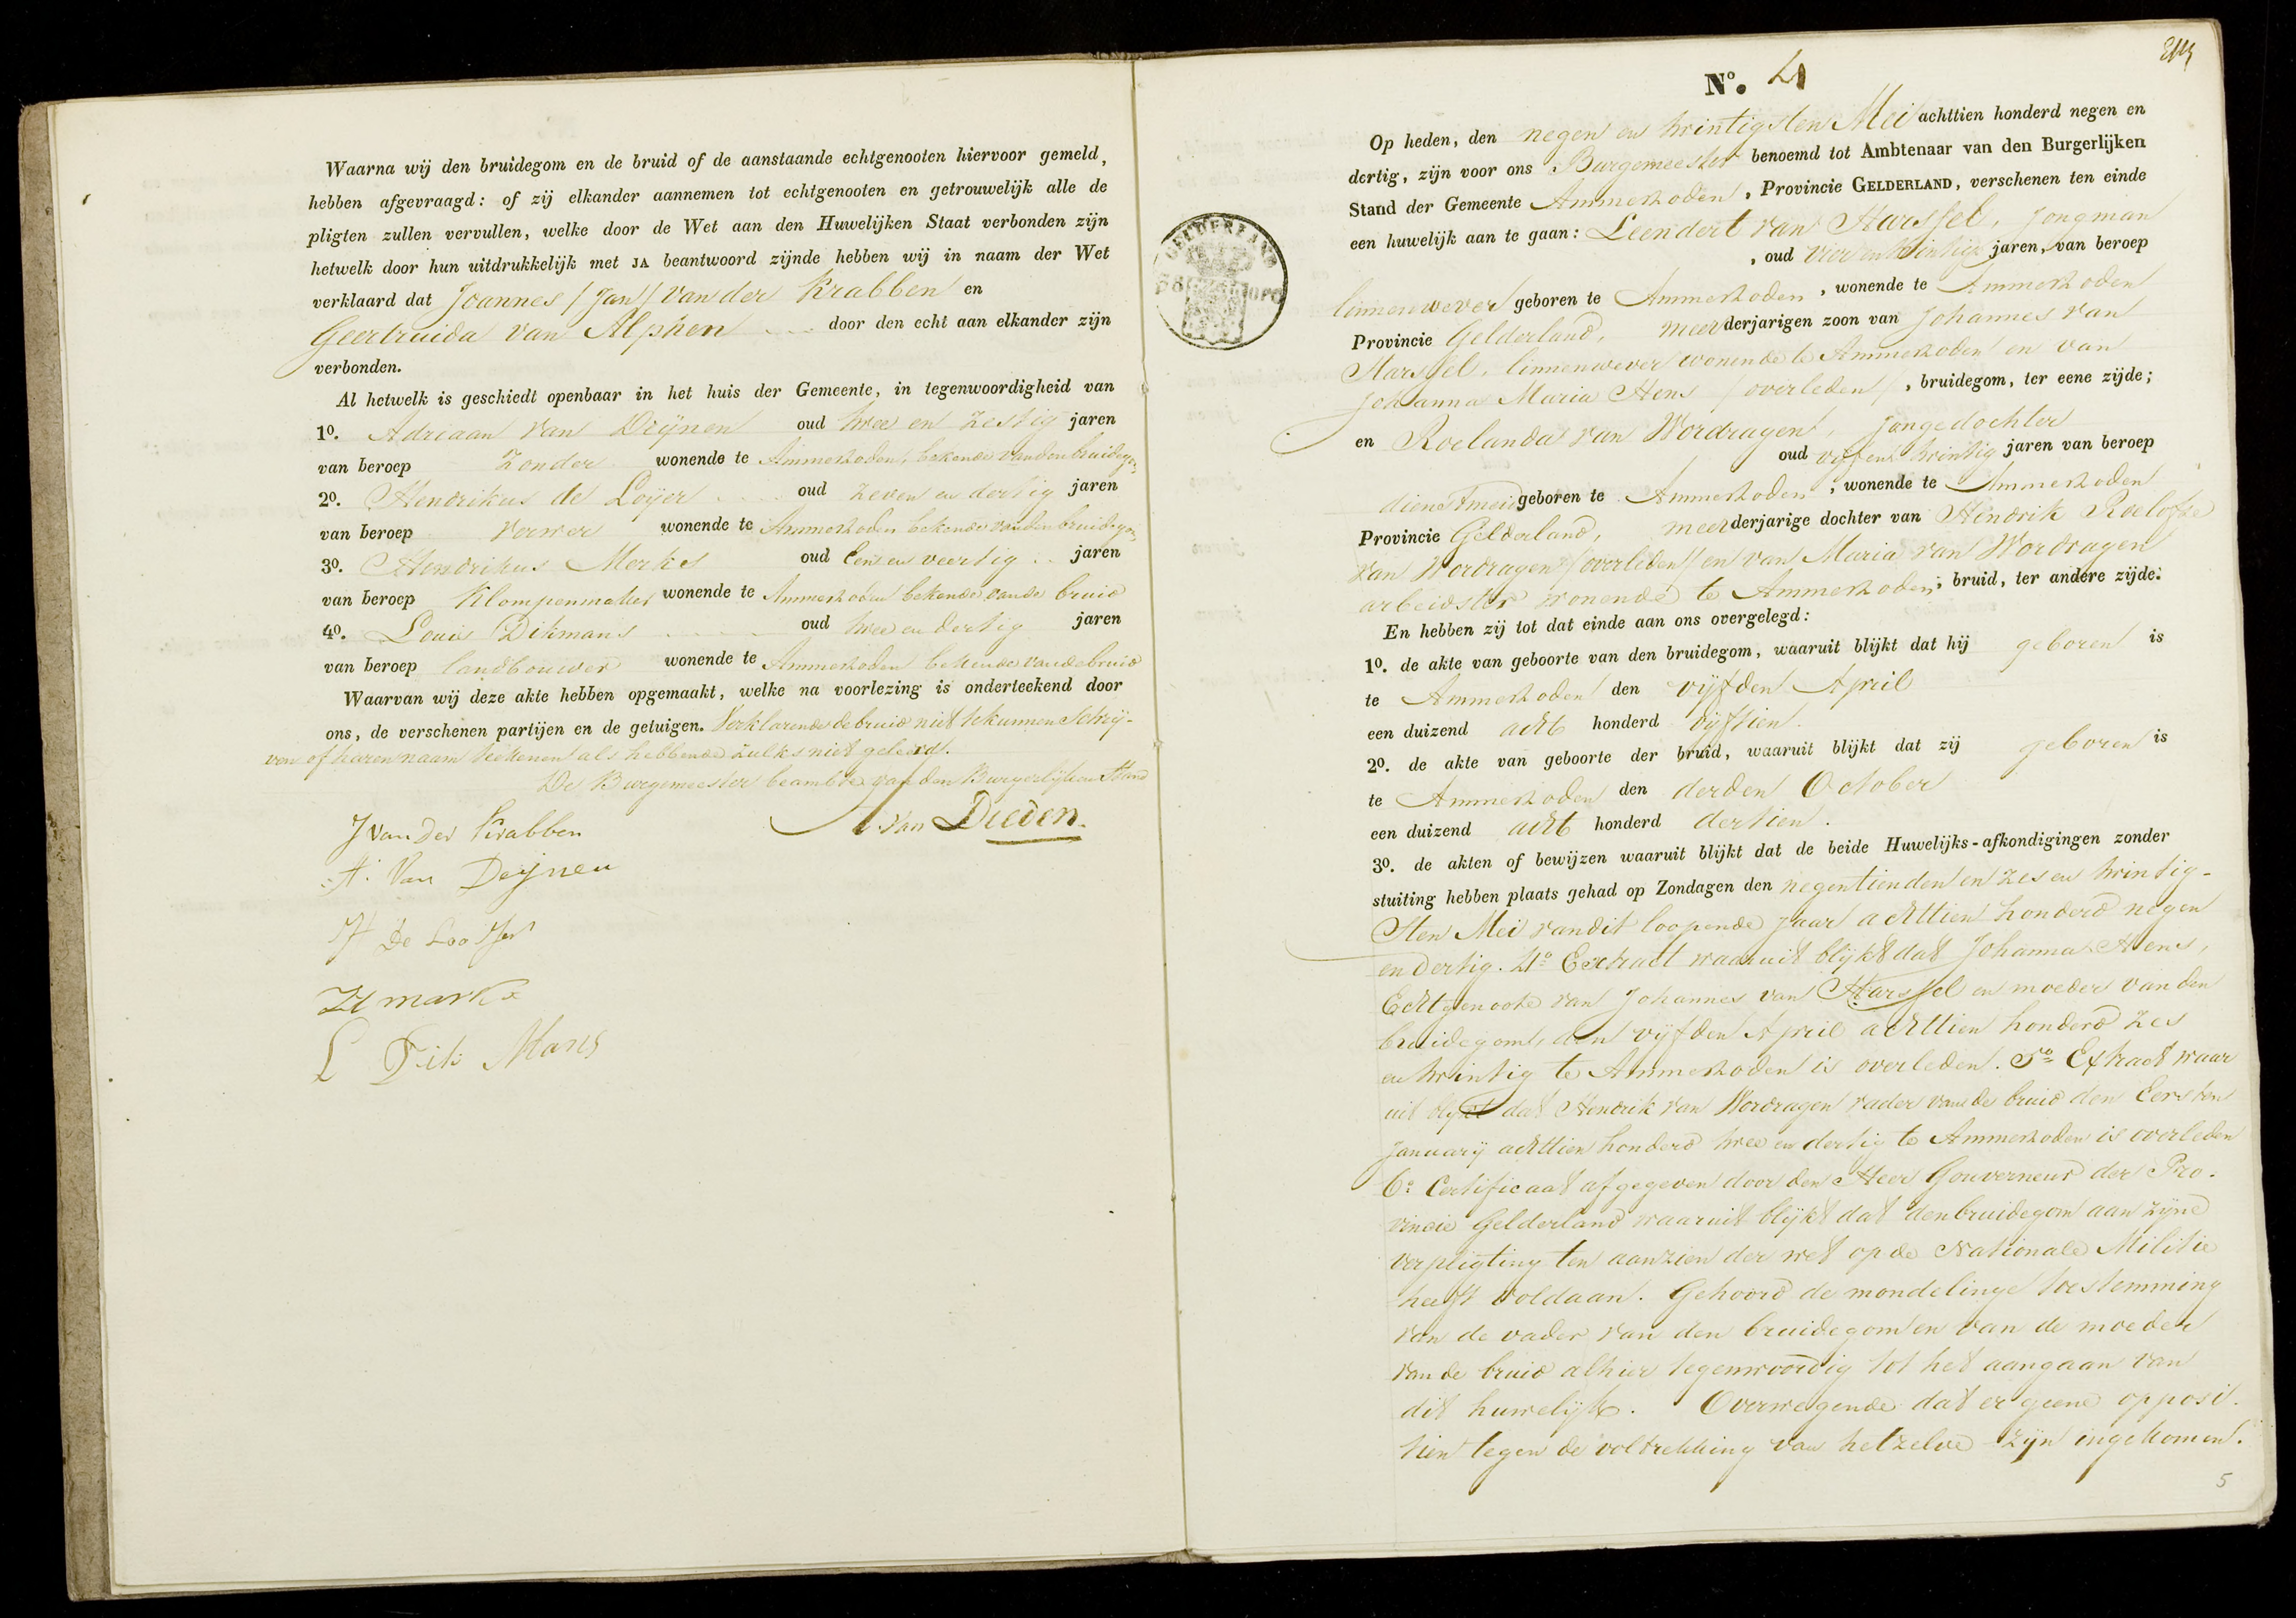 Waarna wij den bruidegom en de bruid of de aanstaande echtgenooten hiervoor gemeld,
hebben afgevraagd: of zij elkander aannemen tot echtgenooten en getrouwelijk alle de
pligten zullen vervullen, welke door de Wet aan den Huwelijken Staat verbonden zijn
hetwelk door hun uitdrukkelijk met JA beantwoord zijnde hebben wij in naam der Wet
verklaard dat Joannes / Jan / van der Krabben en
Geertruida van Alphen door den echt aan elkander zijn
verbonden.
Al hetwelk is geschiedt openbaar in het huis der Gemeente, in tegenwoordigheid van
1o. Adriaan van Dijnen oud twee en zestig jaren
van beroep Zonder wonende te Ammerzoden, bekende van den bruidegom
2o. Hendrikus de Loijer oud zeven en dertig jaren
van beroep verwer wonende te Ammerzoden bekende van den bruidegom
3o. Hendrikus Merks oud Een en veertig jaren
van beroep Klompenmaker wonende te Ammerzoden bekende van de bruid
4o. Louis Dikmans oud twee en dertig jaren
van beroep landbouwer wonende te Ammerzoden bekende van de bruid
Waarvan wij deze akte hebben opgemaakt, welke na voorlezing is onderteekend door
ons, de verschenen partijen en de getuigen. Verklarende de bruid niet te kunnen schrij-
ven of haren naam tekenen als hebbende zulks niet geleerd.
De Burgemeester beambte van den Burgerlijken Stand
van Dieden
J van der Krabben
A. Van Deijnen
H De Looijer
H marks
L Dik Mans
No. 4
Op heden, den negen en twintigsten Mei achttien honderd negen en
dertig, zijn voor ons Burgemeester benoemd tot Ambtenaar van den Burgerlijken
Stand der Gemeente Ammerzoden, Provincie GELDERLAND, verschenen ten einde
een huwelijk aan te gaan: Leendert van Harssel, jongman
, oud vier en twintig jaren, van beroep
linnenwever geboren te Ammerzoden, wonende te Ammerzoden
Provincie Gelderland, meerderjarigen zoon van Johannes van
Harssel, linnenwever wonende te Ammerzoden en van
Johanna Maria Hens / overleden /, bruidegom, ter eene zijde;
en Roelanda van Wordragen, jongedochter
oud vijf en twintig jaren van beroep
dienstmeid geboren te Ammerzoden, wonende te Ammerzoden
Provincie Gelderland, meerderjarige dochter van Hendrik Roelofse
van Wordragen / overleden / en van Maria van Wordragen
arbeidster wonende te Ammerzoden, bruid, ter andere zijde.
En hebben zij tot dat einde aan ons overgelegd:
1o. de akte van geboorte van den bruidegom, waaruit blijkt dat hij geboren is
te Ammerzoden den vijfden April
een duizend acht honderd vijftien.
2o. de akte van geboorte der bruid, waaruit blijkt dat zij geboren is
te Ammerzoden den derden October
een duizend acht honderd dertien.
3o. de akten of bewijzen waaruit blijkt dat de beide Huwelijks-afkondigingen zonder
stuiting hebben plaats gehad op Zondagen den negentienden en zes en twintig-
sten Mei van dit loopende jaar achttien honderd negen
en dertig. 4o Extract waaruit blijkt dat Johanna Hens,
Echtgenoote van Johannes van Harssel en moeder van den
bruidegom, den vijfden April achttien honderd zes
en twintig te Ammerzoden is overleden. 5o Extract waar
uit blijkt dat Hendrik van Wordragen vader van de bruid den Eersten
Januarij achttien honderd twee en dertig te Ammerzoden is overleden
6o Certificaat afgegeven door den Heer Gouverneur der Pro-
vincie Gelderland waaruit blijkt dat den bruidegom aan zijne
verpligting ten aanzien der wet op de Nationale Militie
heeft voldaan. Gehoord de mondelinge toestemming
van de vader van den bruidegom en van de moeder
van de bruid alhier tegenwoordig tot het aangaan van
dit huwelijk. Overwegende dat er geene opposi-
tien tegen de voltrekking van hetzelve zijn ingekomen.
5